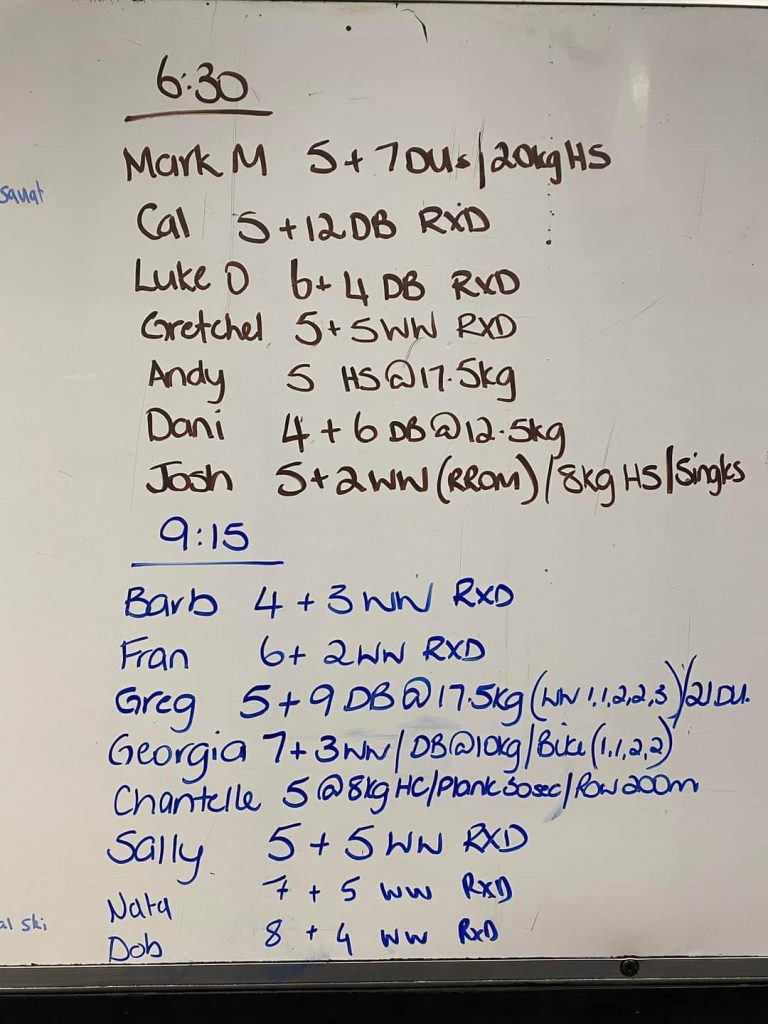 6:30
Mark M 5 + 7 DUs/20kg HS
squat
Cal 5 + 12 DB RXD
Luke O 6 + 4 DB RXD
Gretchel 5 + 5 WW RXD
Andy 5 HS @ 17.5kg
Dani 4 + 6 DB @ 12.5kg
Josh 5 + 2 WW (RROM)/8kg HS/Singles
9:15
Barb 4 + 3 WW RXD
Fran 6 + 2 WW RXD
Greg 5 + 9 DB @ 17.5kg (WW 1,1,2,2,3)/21 DU.
Georgia 7 + 3 WW/DB@10kg/Bike (1,1,2,2)
Chantelle 5 @ 8kg HC/Plank 30sec/Row 200m
Sally 5 + 5 WW RXD
Nata 7 + 5 WW RXD
al ski
Dob 8 + 4 WW RXD